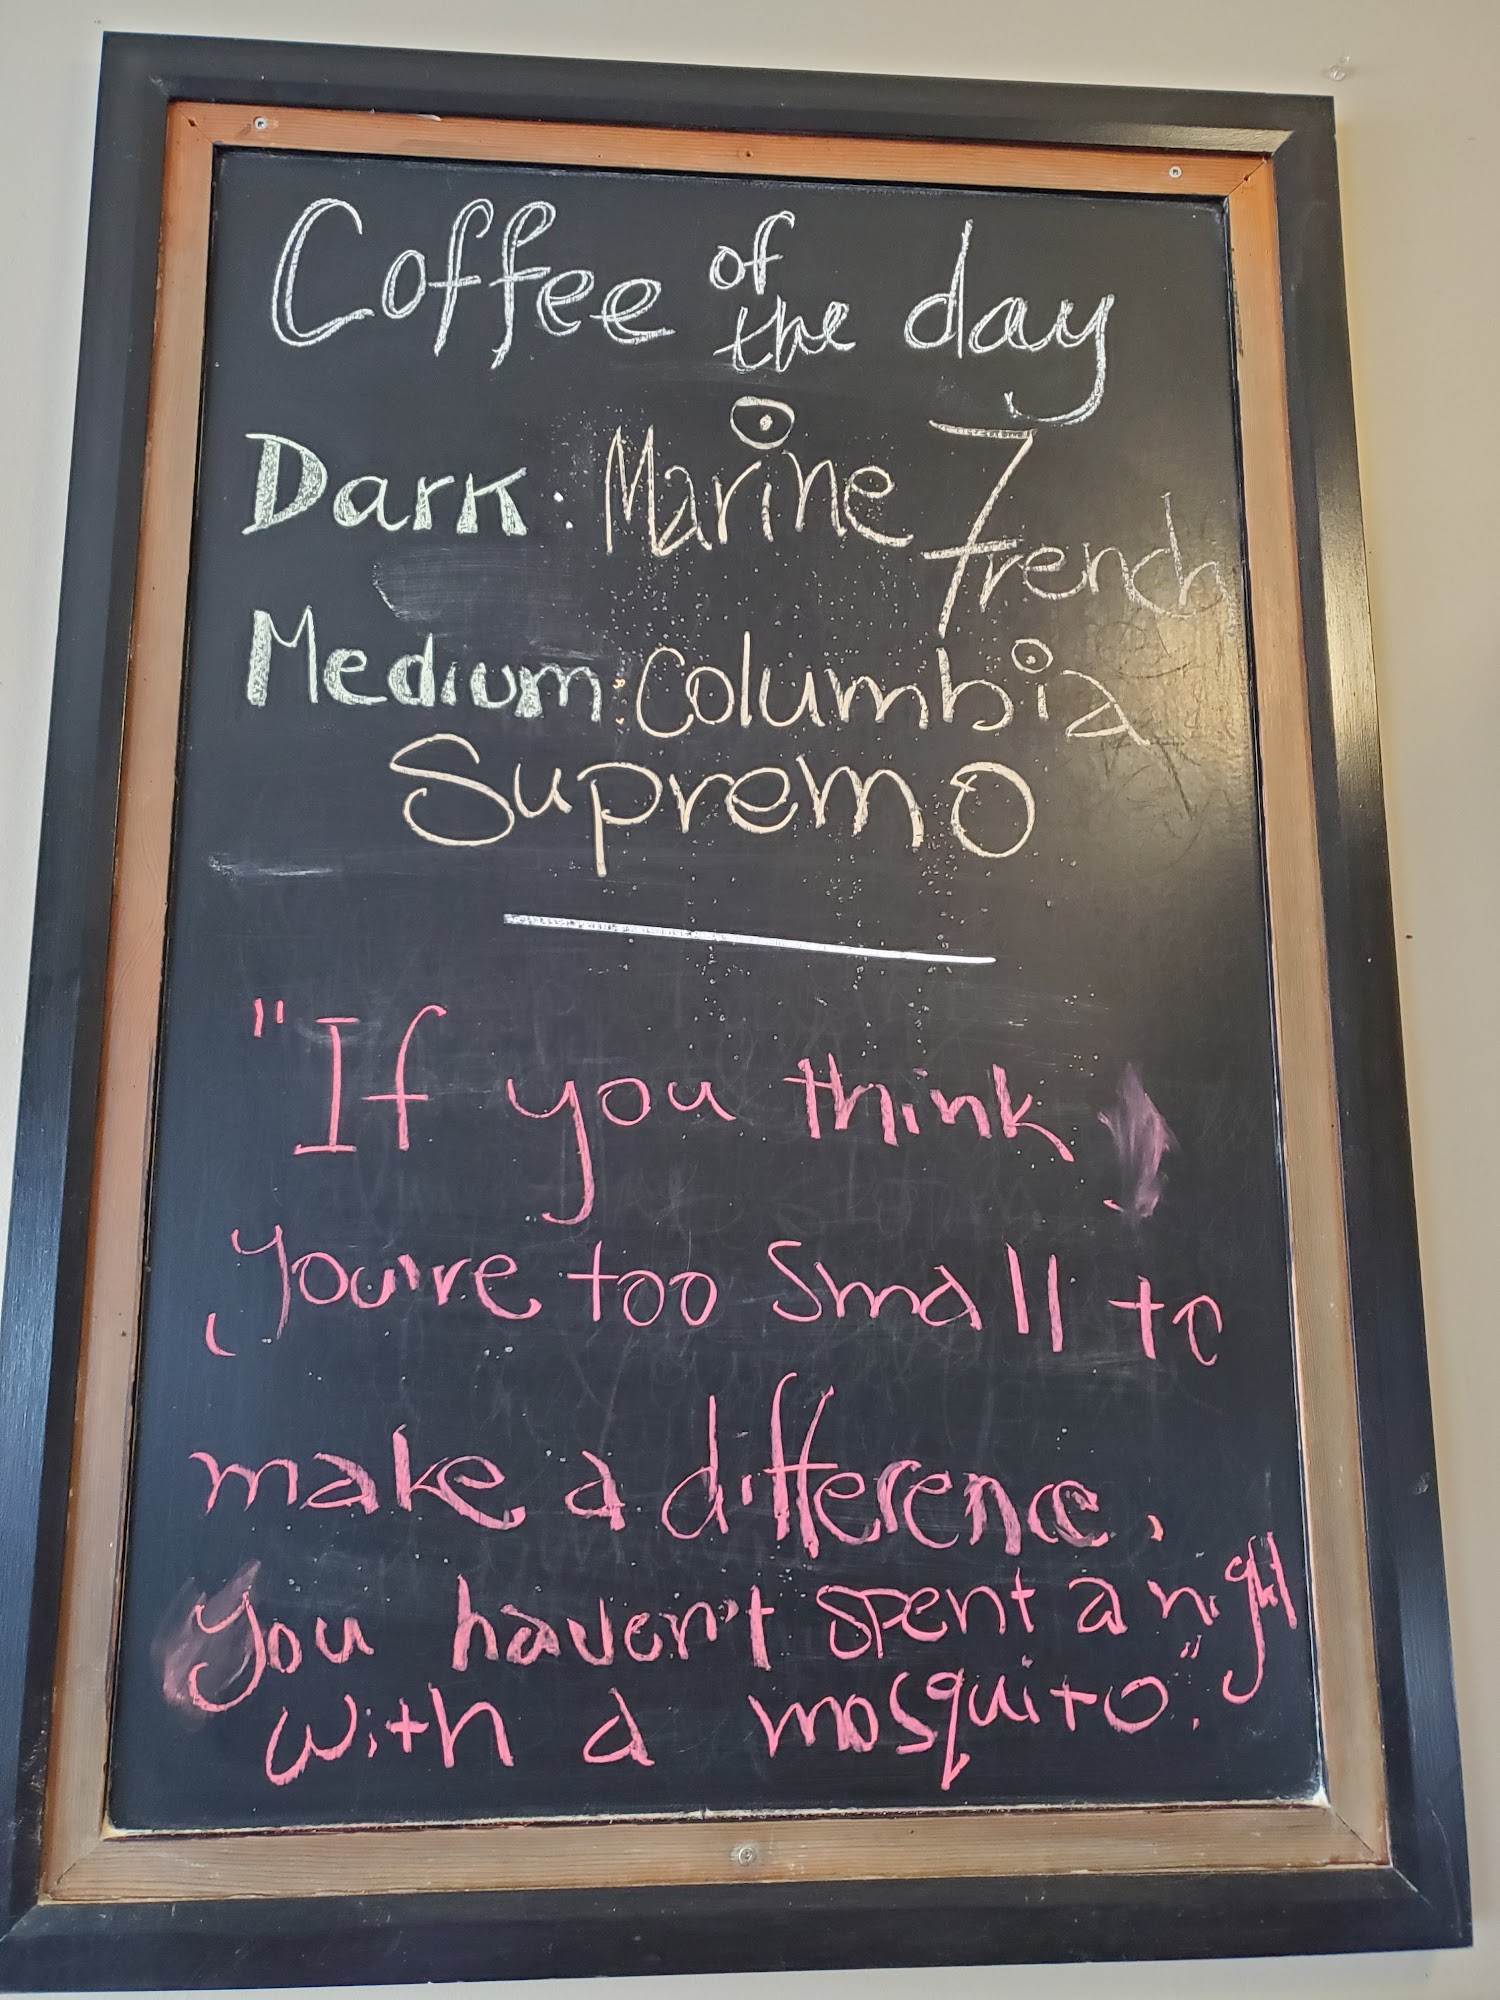 Coffee of the day
Dark: Marine French
Medium: Columbia
Supremo
"If you think
you're too small to
make a difference,
you haven't spent a night
with a mosquito."